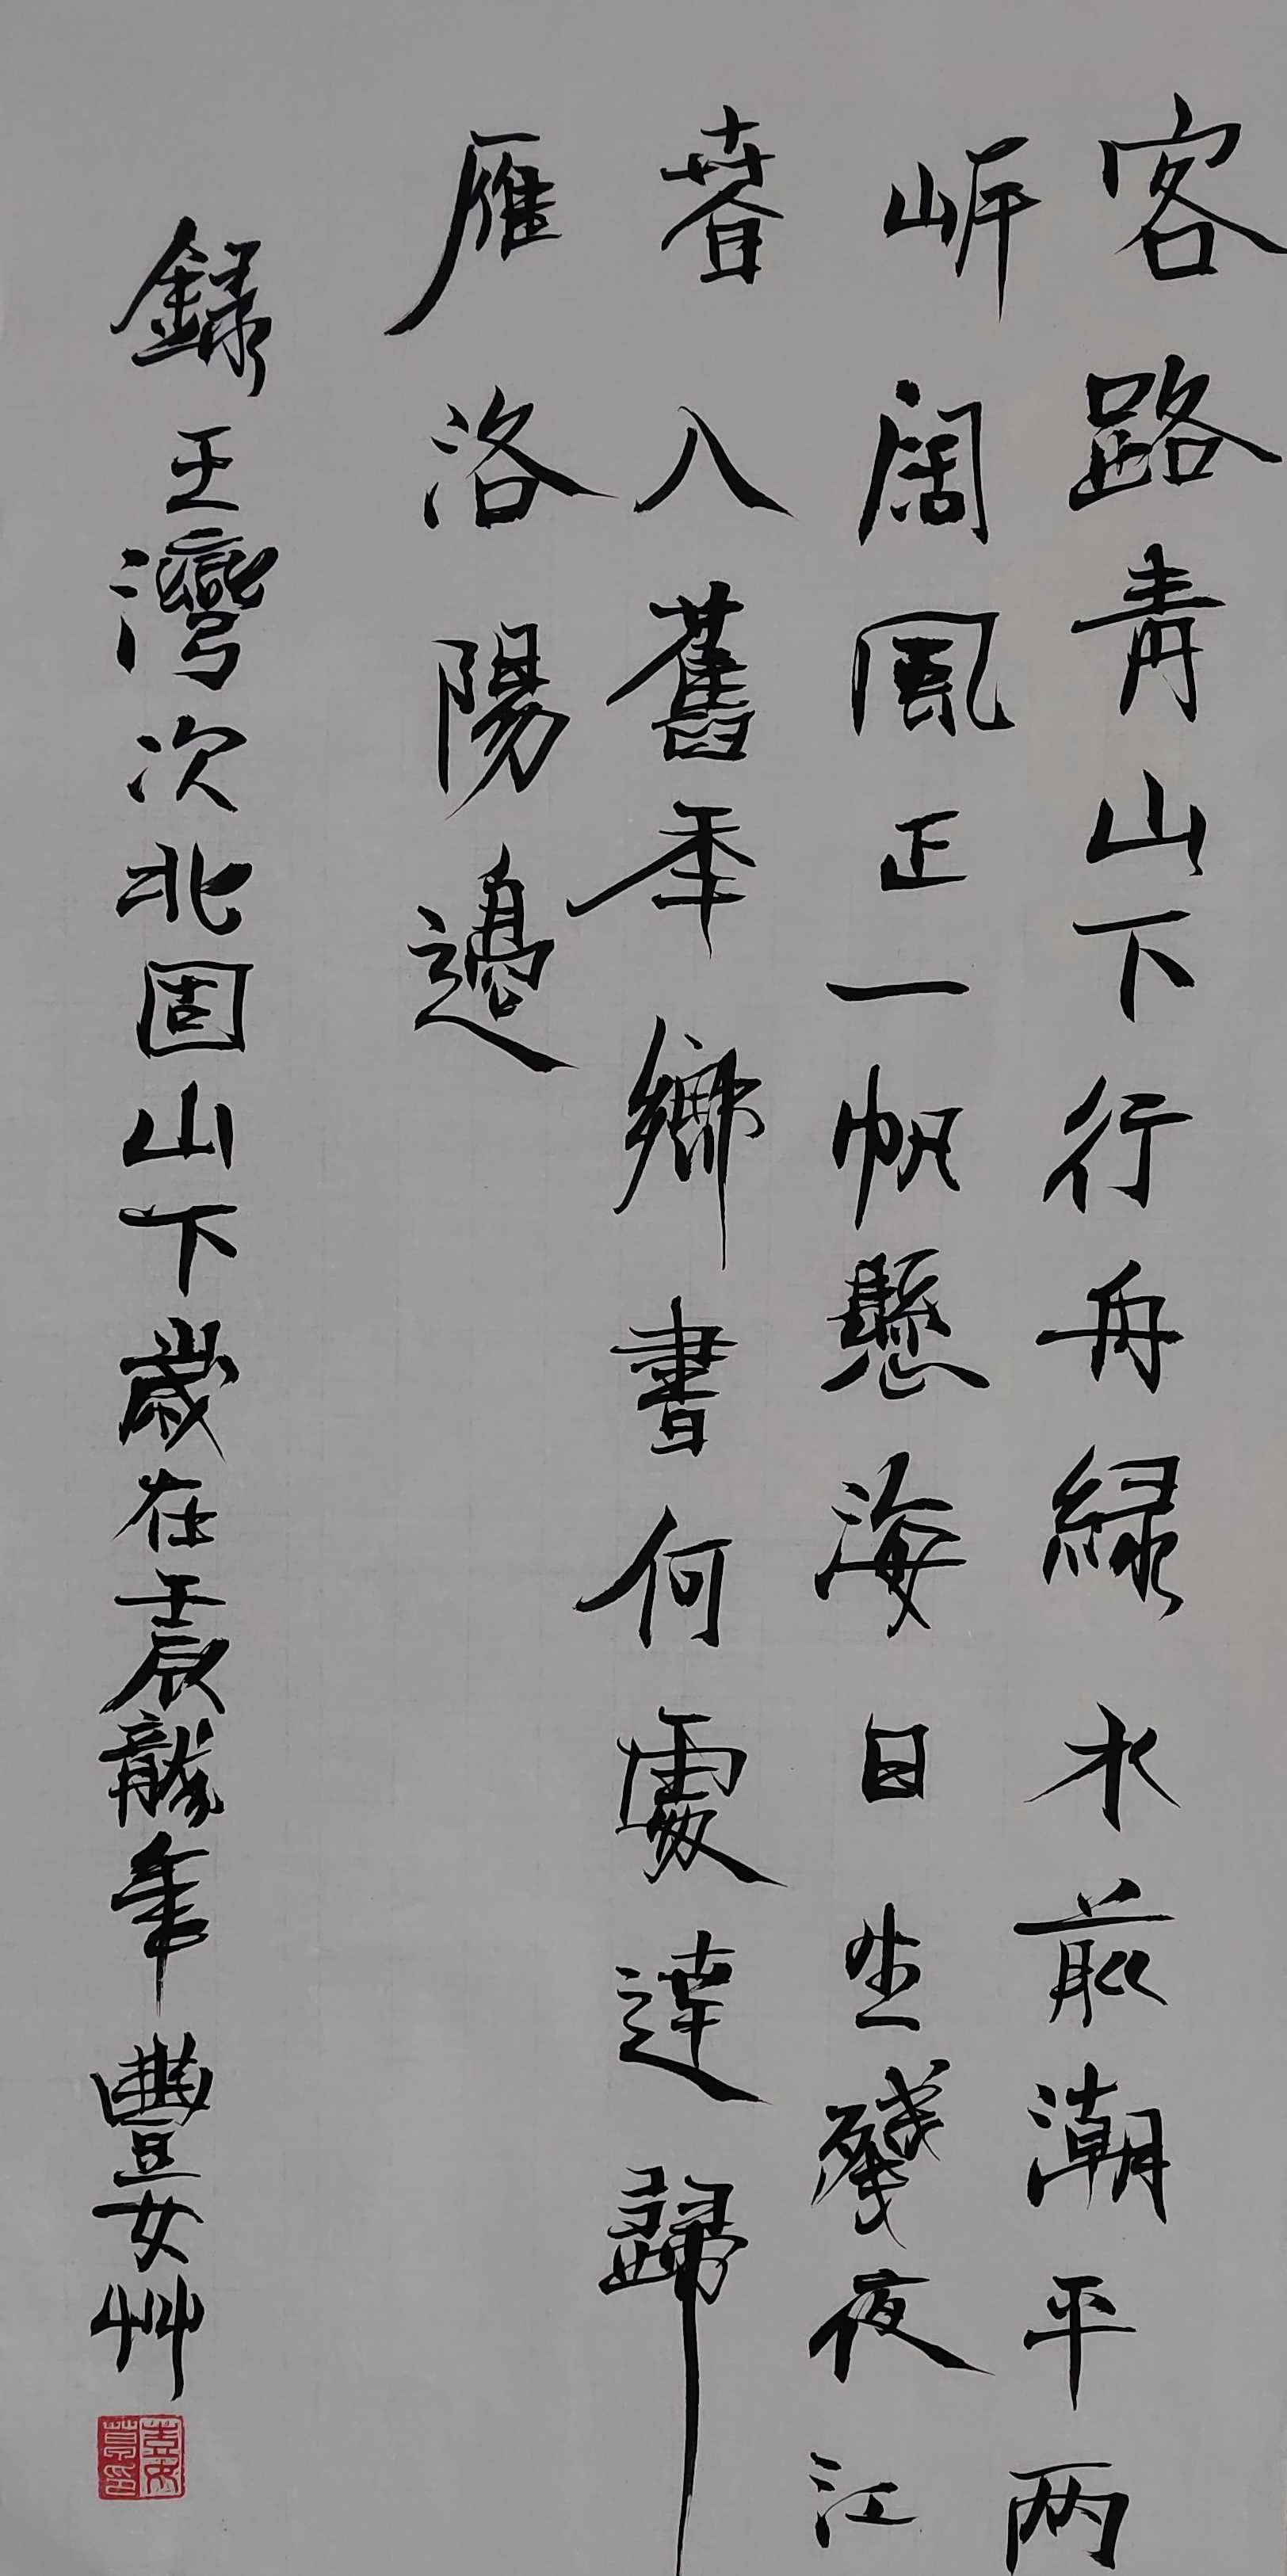 客路青山下行舟緑水前潮平两
岸阔風正一帆懸海日生殘夜江
春入舊年鄉書何處達歸
雁洛陽邊
錄王灣次北固山下歲在壬辰龍年豐艸